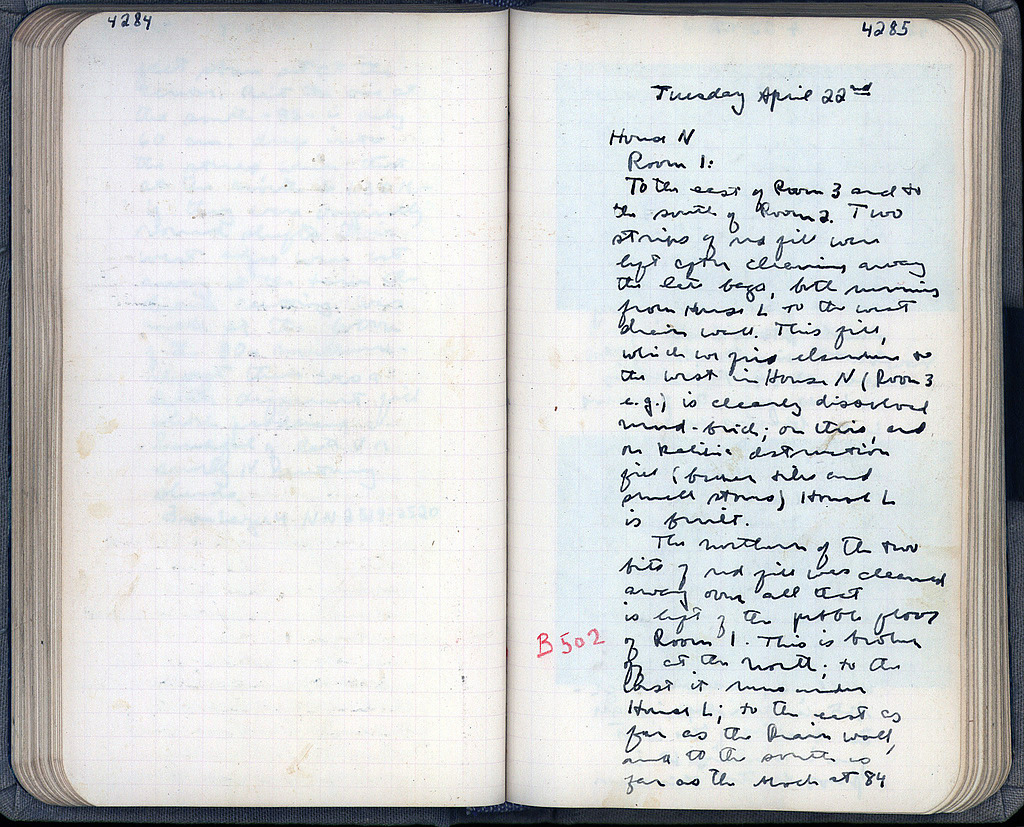 4284
4285
Tuesday April 22nd
House N
Room 1:
To the east of Room 3 and to
the south of Room 2. Two
strips of red fill were
left after cleaning away
the late bags, both running
from House L to the west
drain wall. This fill,
which we find elsewhere to
the west in House N (Room 3
e.g.) is clearly dissolved
mud-brick; on this, and
on destruction
fill (broken tiles and
small stones) House L
is built.
The northern of the two
bits of red fill was cleaned
away over all that
is left of the pebble floor
B 502
of Room 1. This is broken
off at the north; to the
it runs under
House L; to the east as
far as the Drain wall,
and to the south as
far as the at 84